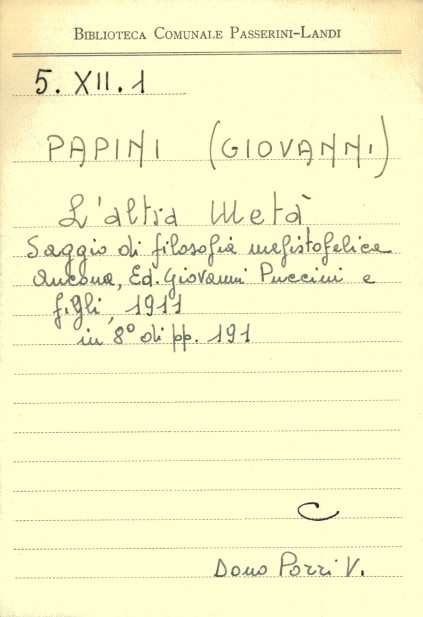 BIBLIOTECA COMUNALE PASSERINI-LANDI
5. XII. 1
PAPINI (GIOVANNI)
L'altra Metà
Saggio di filosofia mefistofelica
Ancona, Ed. Giovanni Puccini e
figli, 1911
in 8° di pp. 191
C
Dono Pozzi V.